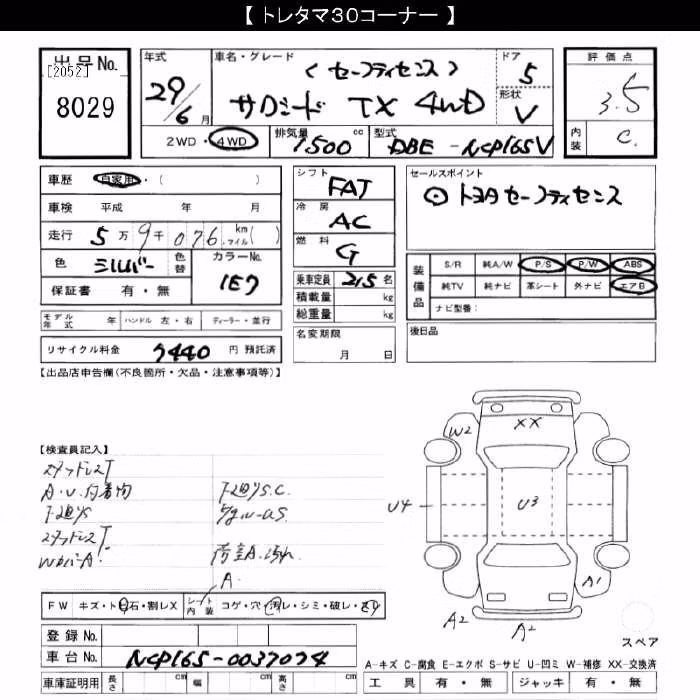 【 トレタマ30コーナー 】
出品No.
[2052]
8029
年式
29/6月
車名・グレード
(セーフティセンス)
サクシード TX 4WD
ドア
5
形状
V
評価点
3.5
内装
C
2WD・4WD
排気量
1500cc
型式
DBE-NCP165V
車歴 自家用・( )
車検 平成 年 月
走行 5万9千076km マイル( )
色 シルバー 色替 カラーNo. 1E7
保証書 有・無
モデル年式 年 ハンドル 左・右 ディーラー・並行
リサイクル料金 7440円 預託済
シフト FAT
冷房 AC
燃料 G
乗車定員 2,5名
積載量 kg
総重量 kg
名変期限
月 日
セールスポイント
⊙トヨタセーフティセンス
装備品 S/R 純A/W P/S P/W ABS
純TV 純ナビ 革シート 外ナビ エアB
ナビ型番:
後日品
【出品店申告欄(不良箇所・欠品・注意事項等)】
【検査員記入】
スタッドレスT
A.U.付着物
下廻りS
スタッドレスT
下廻りS.C.
荷室A.汚れ
A.
W2
XX
U4
U3
A1
A2
A2
スペア
FW キズ・ト石・割レX シート内装 コゲ・穴・汚レ・シミ・破レ・
登録No.
車台No. NCP165-0037074
車庫証明用 長さ cm 幅 cm 高さ cm
A-キズ C-腐食 E-エクボ S-サビ U-凹ミ W-補修 XX-交換済
工具 有・無 ジャッキ 有・無